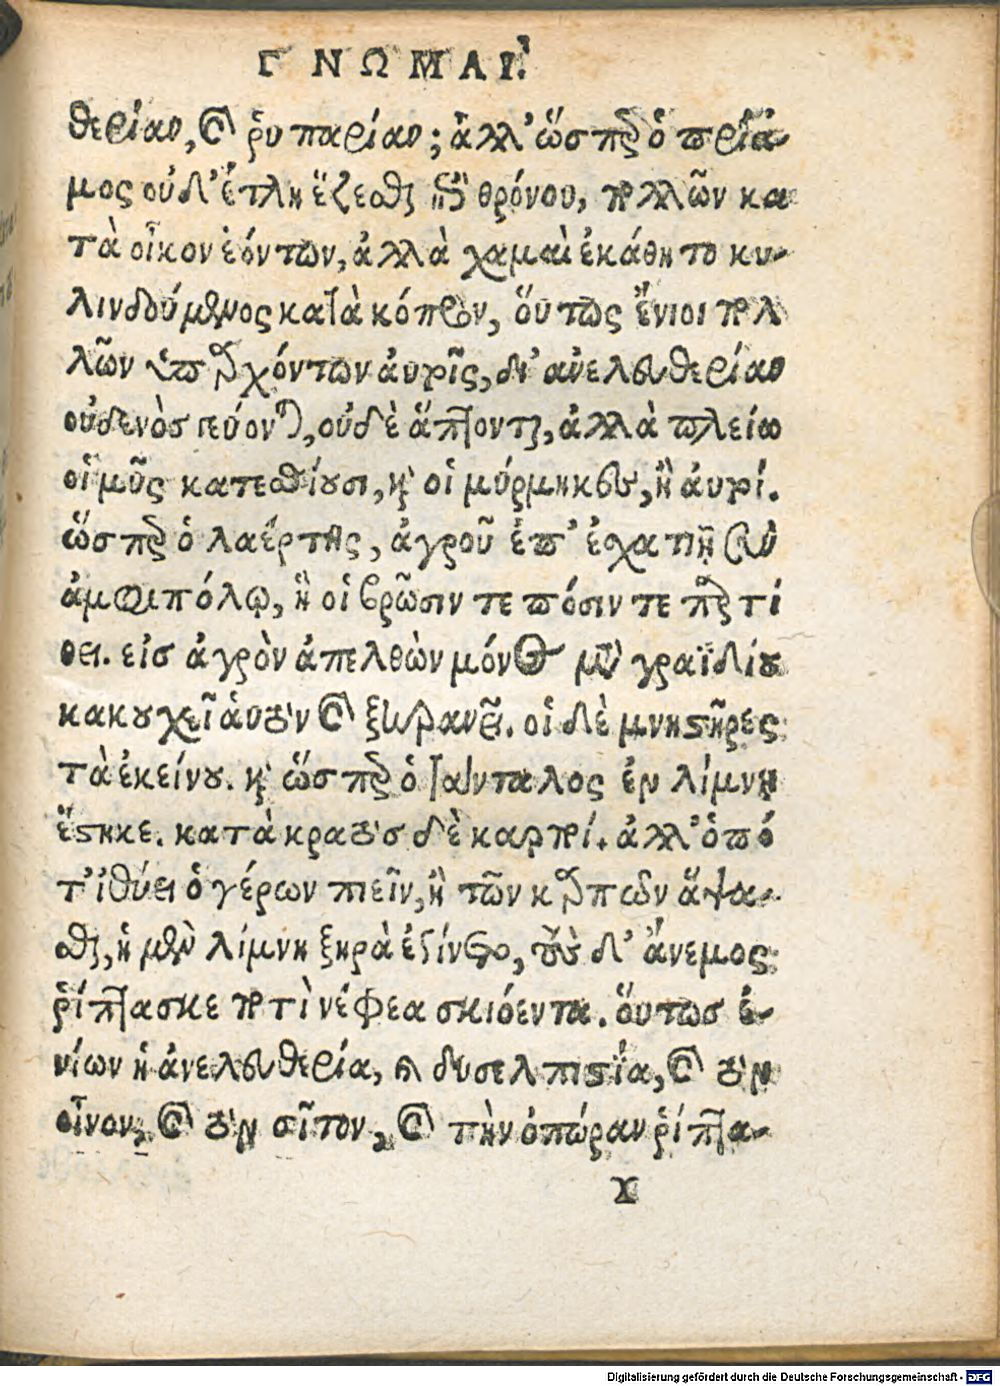 ΓΝΩΜΑΙ.
θερίαν, καὶ ῥυπαρίαν; ἀλλ' ὥσπερ ὁ πρία-
μος οὐδ' ἔτλη ἕζεσθαι ἐπὶ θρόνου, πολλῶν κα
τὰ οἶκον ἐόντων, ἀλλὰ χαμαὶ ἐκάθητο κυ-
λινδούμενος κατὰ κόπρον, οὕτως ἔνιοι πολ
λῶν ὑπαρχόντων αὐτοῖς, δι' ἀνελευθερίαν
οὐδενὸς γεύονται, οὐδὲ ἅπτονται, ἀλλὰ πλείω
οἱ μῦς κατεσθίουσι, καὶ οἱ μύρμηκες, ἢ αὐτοί.
ὥσπερ ὁ λαέρτης, ἀγροῦ ἐπ' ἐσχατιῇ σὺν
ἀμφιπόλῳ, ἥ οἱ βρῶσίν τε πόσιν τε παρτί
θει. εἰς ἀγρὸν ἀπελθὼν μόνος μετὰ γραϊδίου
κακουχεῖ ἑαυτὸν καὶ ξηραίνει. οἱ δὲ μνηστῆρες
τὰ ἐκείνου. καὶ ὥσπερ ὁ τάνταλος ἐν λίμνῃ
ἕστηκε. κατὰ κρατὸς δὲ καρποί. ἀλλ' ὁπό
τ' ἰθύει ὁ γέρων πιεῖν, ἢ τῶν καρπῶν ἅψα-
σθαι, ἡ μὲν λίμνη ξηρὰ ἐγίνετο, τοὺς δ' ἄνεμος
ῥίπτασκε ποτὶ νέφεα σκιόεντα. οὕτως ἐ-
νίων ἡ ἀνελευθερία, καὶ δυσελπιστία, καὶ τὸν
οἶνον, καὶ τὸν σῖτον, καὶ τὴν ὀπώραν ῥίπτα-
Υ
Digitalisierung gefördert durch die Deutsche Forschungsgemeinschaft - DFG